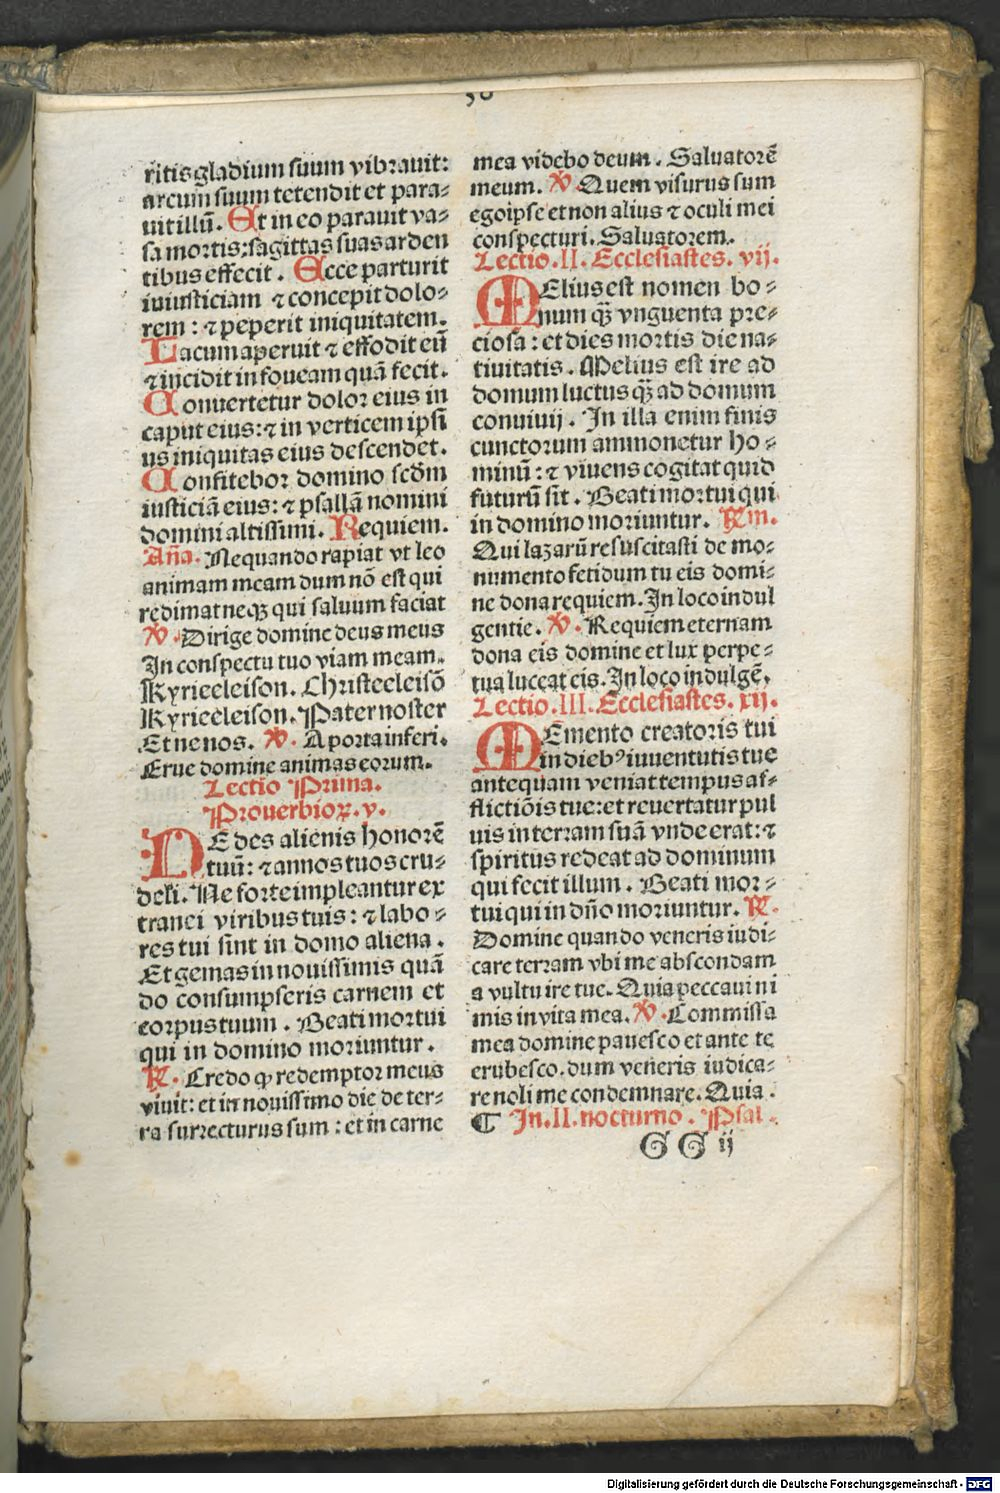 ritis gladium suum vibrauit:
arcum suum tetendit et para⸗
uit illū. Et in eo parauit va⸗
sa mortis: sagittas suas arden
tibus effecit. Ecce parturit
iniusticiam ⁊ concepit dolo⸗
rem: ⁊ peperit iniquitatem.
Lacum aperuit ⁊ effodit eū
⁊ incidit in foueam quā fecit.
Conuertetur dolor eius in
caput eius: ⁊ in verticem ipsi
us iniquitas eius descendet.
Confitebor domino scd̄m
iusticiā eius: ⁊ psallā nomini
domini altissimi. Requiem.
Aña. Nequando rapiat vt leo
animam meam dum nō est qui
redimat neqꝫ qui saluum faciat
℣. Dirige domine deus meus
In conspectu tuo viam meam.
Kyrieeleison. Christeeleisō
Kyrieeleison. Pater noster
Et ne nos. ℣. A porta inferi.
Erue domine animas eorum.
Lectio Prima.
Prouerbioꝝ. v.
NE des alienis honorē
tuū: ⁊ annos tuos cru⸗
deli. Ne forte impleantur ex
tranei viribus tuis: ⁊ labo⸗
res tui sint in domo aliena.
Et gemas in nouissimis quā
do consumpseris carnem et
corpus tuum. Beati mortui
qui in domino moriuntur.
℟. Credo ꝙ redemptor meus
viuit: et in nouissimo die de ter⸗
ra surrecturus sum: et in carne
mea videbo deum. Saluatorē
meum. ℣ Quem visurus sum
ego ipse et non alius ⁊ oculi mei
conspecturi. Saluatorem.
Lectio. II. Ecclesiastes. vij.
MElius est nomen bo⸗
num qꝫ̄ vnguenta pre⸗
ciosa: et dies mortis die na⸗
tiuitatis. Melius est ire ad
domum luctus qꝫ̄ ad domum
conuiuij. In illa enim finis
cunctorum ammonetur ho⸗
minū: ⁊ viuens cogitat quid
futurū sit. Beati mortui qui
in domino moriuntur. ℟m.
Qui lazarū resuscitasti de mo⸗
numento fetidum tu eis domi⸗
ne dona requiem. In loco indul
gentie. ℣. Requiem eternam
dona eis domine et lux perpe⸗
tua luceat eis. In loco indulgē.
Lectio. III. Ecclesiastes. xij.
MEmento creatoris tui
in diebꝰ iuuentutis tue
antequam veniat tempus af⸗
flictiōis tue: et reuertatur pul
uis in terram suā vnde erat: ⁊
spiritus redeat ad dominum
qui fecit illum. Beati mor⸗
tui qui in dño moriuntur. ℟.
Domine quando veneris iudi⸗
care terram vbi me abscondam
a vultu ire tue. Quia peccaui ni
mis in vita mea. ℣. Commissa
mea domine pauesco et ante te
erubesco. dum veneris iudica⸗
re noli me condemnare. Quia.
¶ In. II. nocturno. Psal.
GG ij
Digitalisierung gefördert durch die Deutsche Forschungsgemeinschaft - DFG